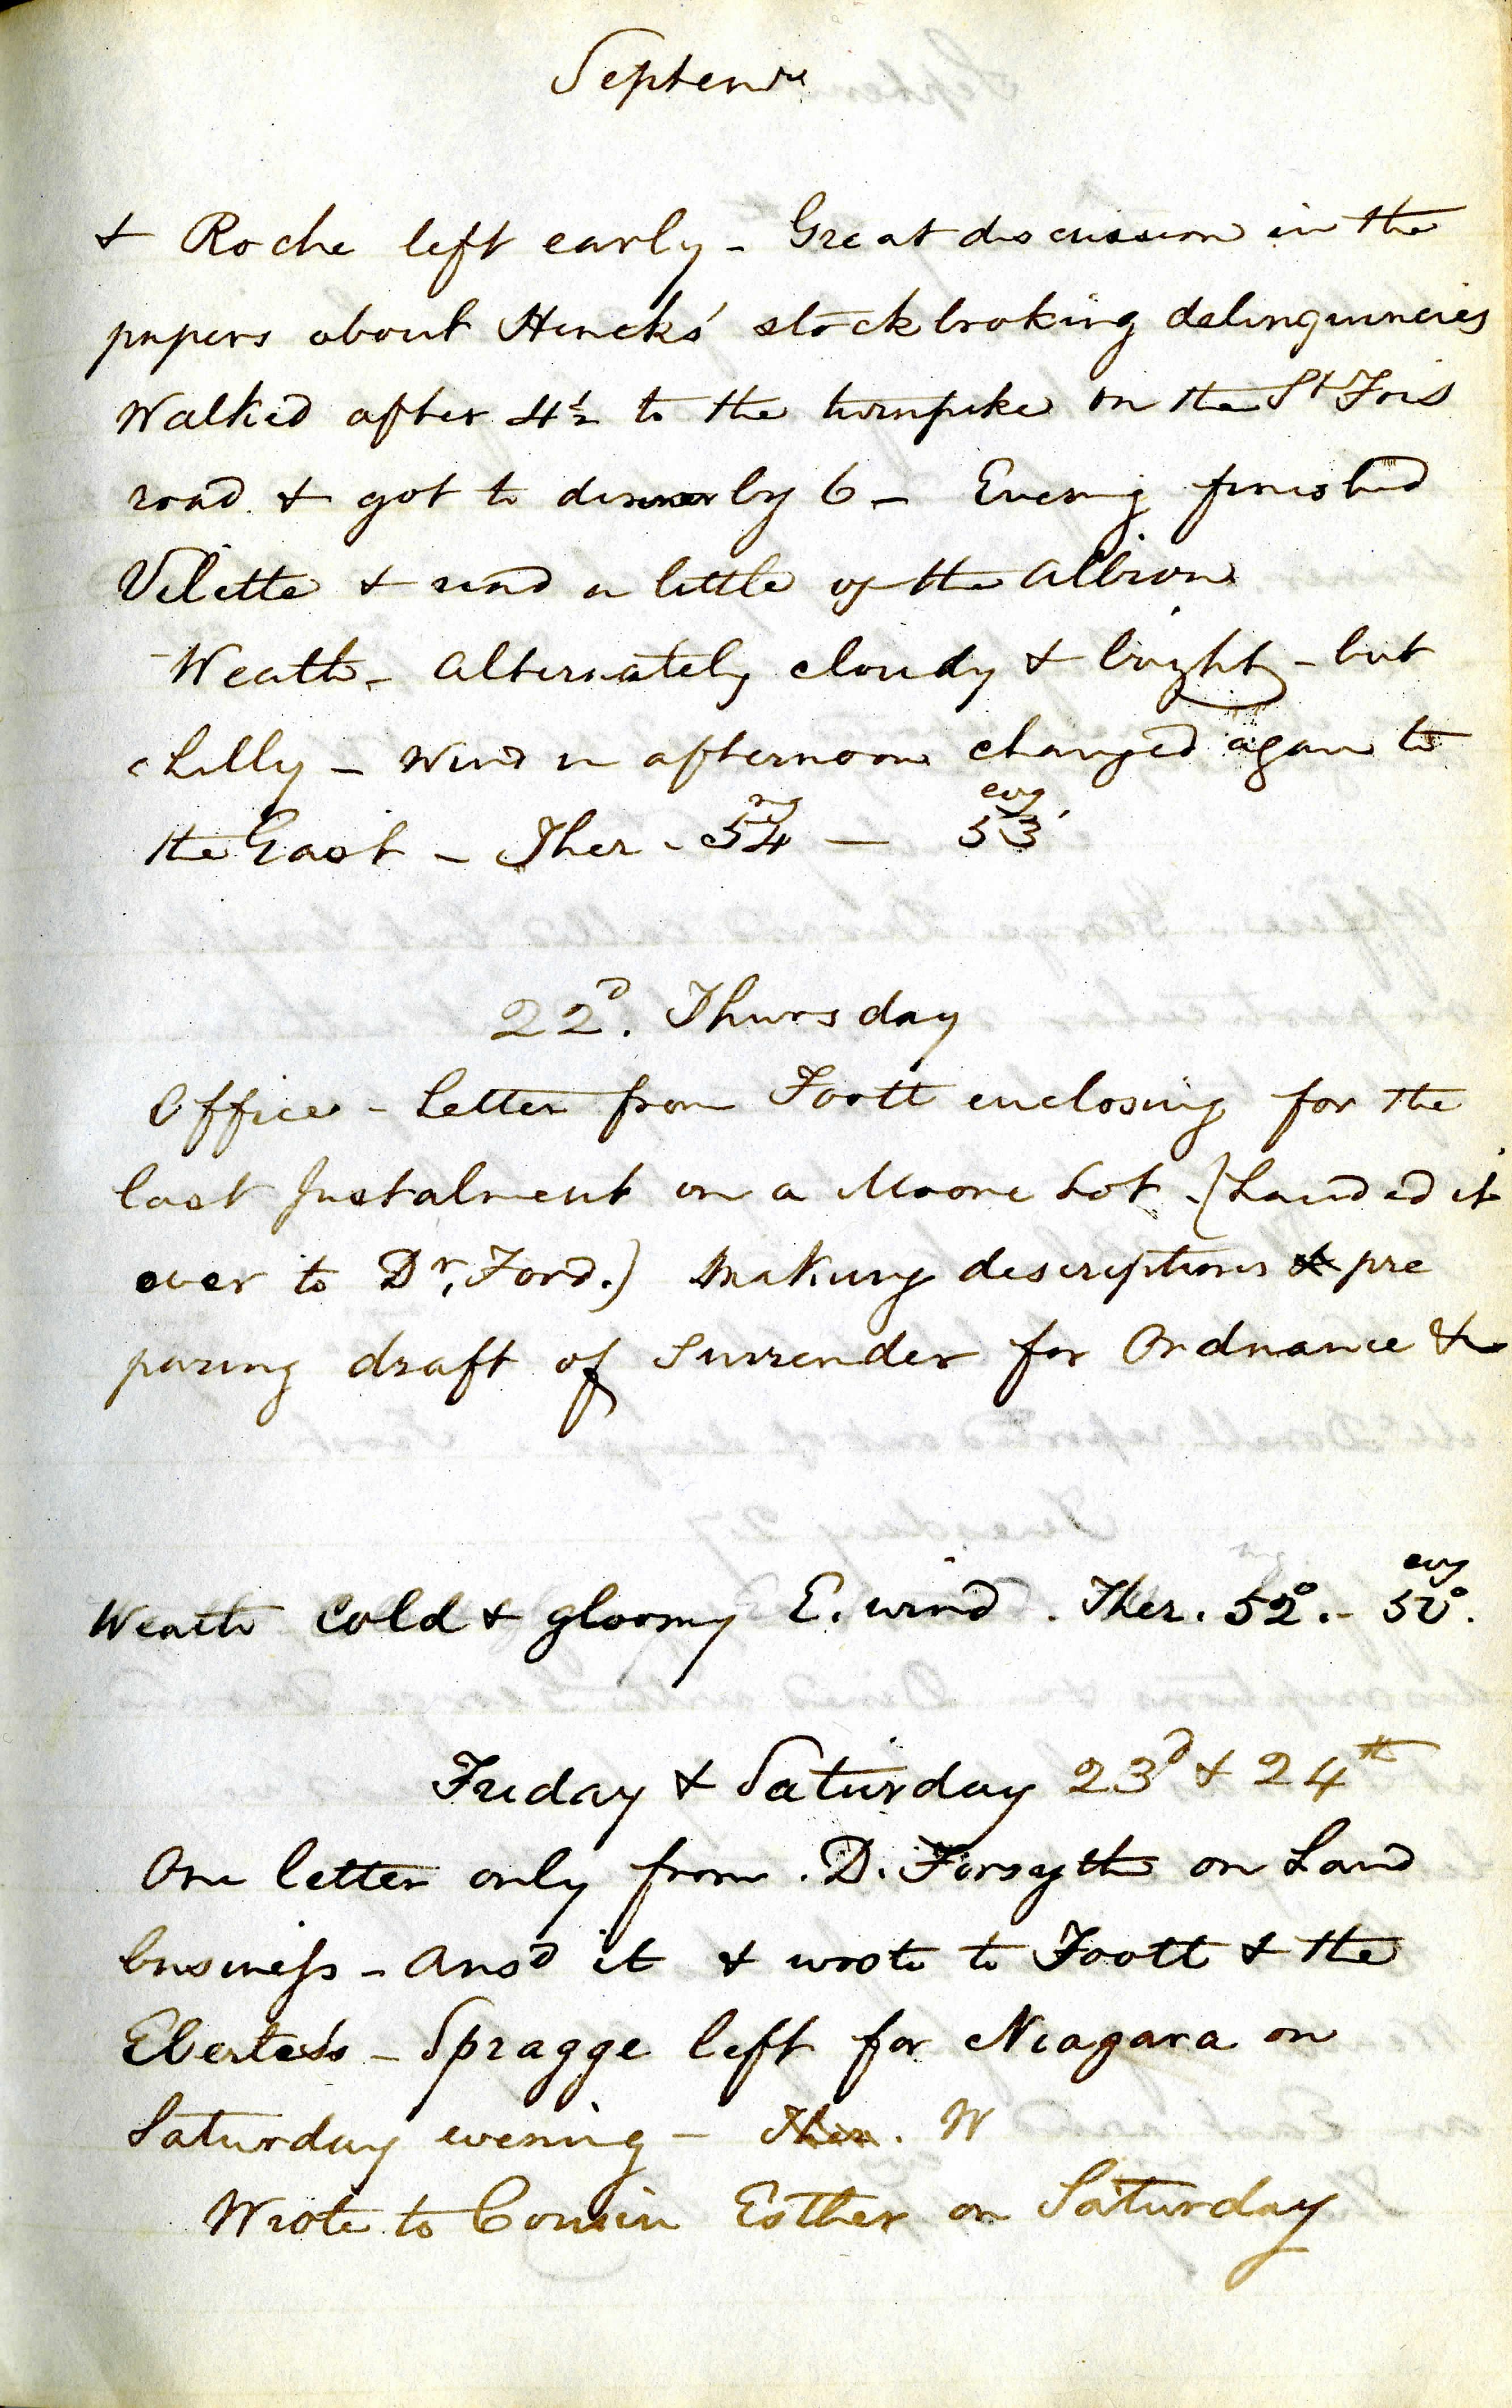 Septemr
& Roche left early - Great discussion in the
papers about Hincks' stockbroking delinquincies
Walked after 4½ to the turnpike on the St Fois
road & got to dinner by 6 - Evening finished
Vilette & read a little of the Albion
- Weathr - alternately cloudy & bright - but
chilly - Wind in afternoon changed again to
the East - Ther - mg 54 — evg 53
22d. Thursday
Office - Letter from Foott enclosing for the
last Instalment on a Moore Lot. (handed it
over to Dr. Ford.) Making descriptions & pre
paring draft of Surrender for Ordnance &c
Weathr Cold & gloomy E. wind. Ther. 52°. - evg 50°.
Friday & Saturday 23d & 24th
One letter only from D. Forsyth on Land
business - Ansd it & wrote to Foott & the
Eberts's - Spragge left for Niagara on
Saturday evening - Ther. W
Wrote to Cousin Esther on Saturday